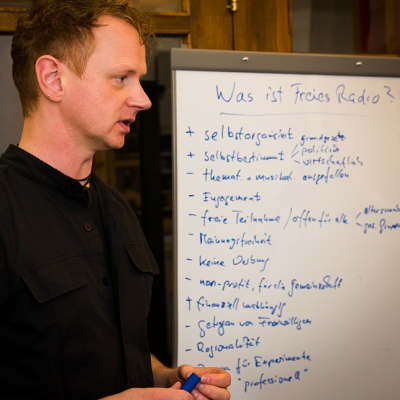 Was ist Freies Radio?
+ selbstorganisiert grundgesetz
+ selbstbestimmt politisch wirtschaftlich
- themat. + musikal. ausgefallen
- Engagement
- freie Teilnahme / offen für alle
- Mainungsfreiheit
- keine Werbung
- non-profit, für die Gemeinschaft
+ finanziell unabhängig
- Getragen von Freiwilligen
- Regionalität
für Experimente
"professionell"